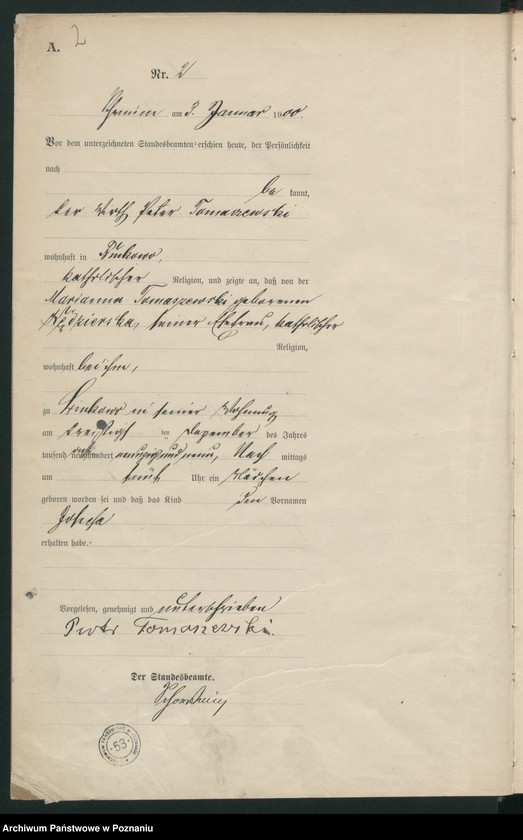 A. 2
Nr. 2
am 3. Januar 1900.
Vor dem unterzeichneten Standesbeamten erschien heute, der Persönlichkeit
nach
be kannt,
der Wirth Peter Tomaszewski
wohnhaft in
katholischer Religion, und zeigte an, daß von der
Marianna Tomaszewski geborenen
seiner Ehefrau, katholischer
Religion,
wohnhaft bei ihm,
zu in seiner Wohnung
am ten Dezember des Jahres
tausend acht hundert neunzig und neun, Nach mittags
um fünf Uhr ein Mädchen
geboren worden sei und daß das Kind den Vornamen
Josepha
erhalten habe.
Vorgelesen, genehmigt und unterschrieben
Piotr Tomaszewski.
Der Standesbeamte.
53
Archiwum Państwowe w Poznaniu